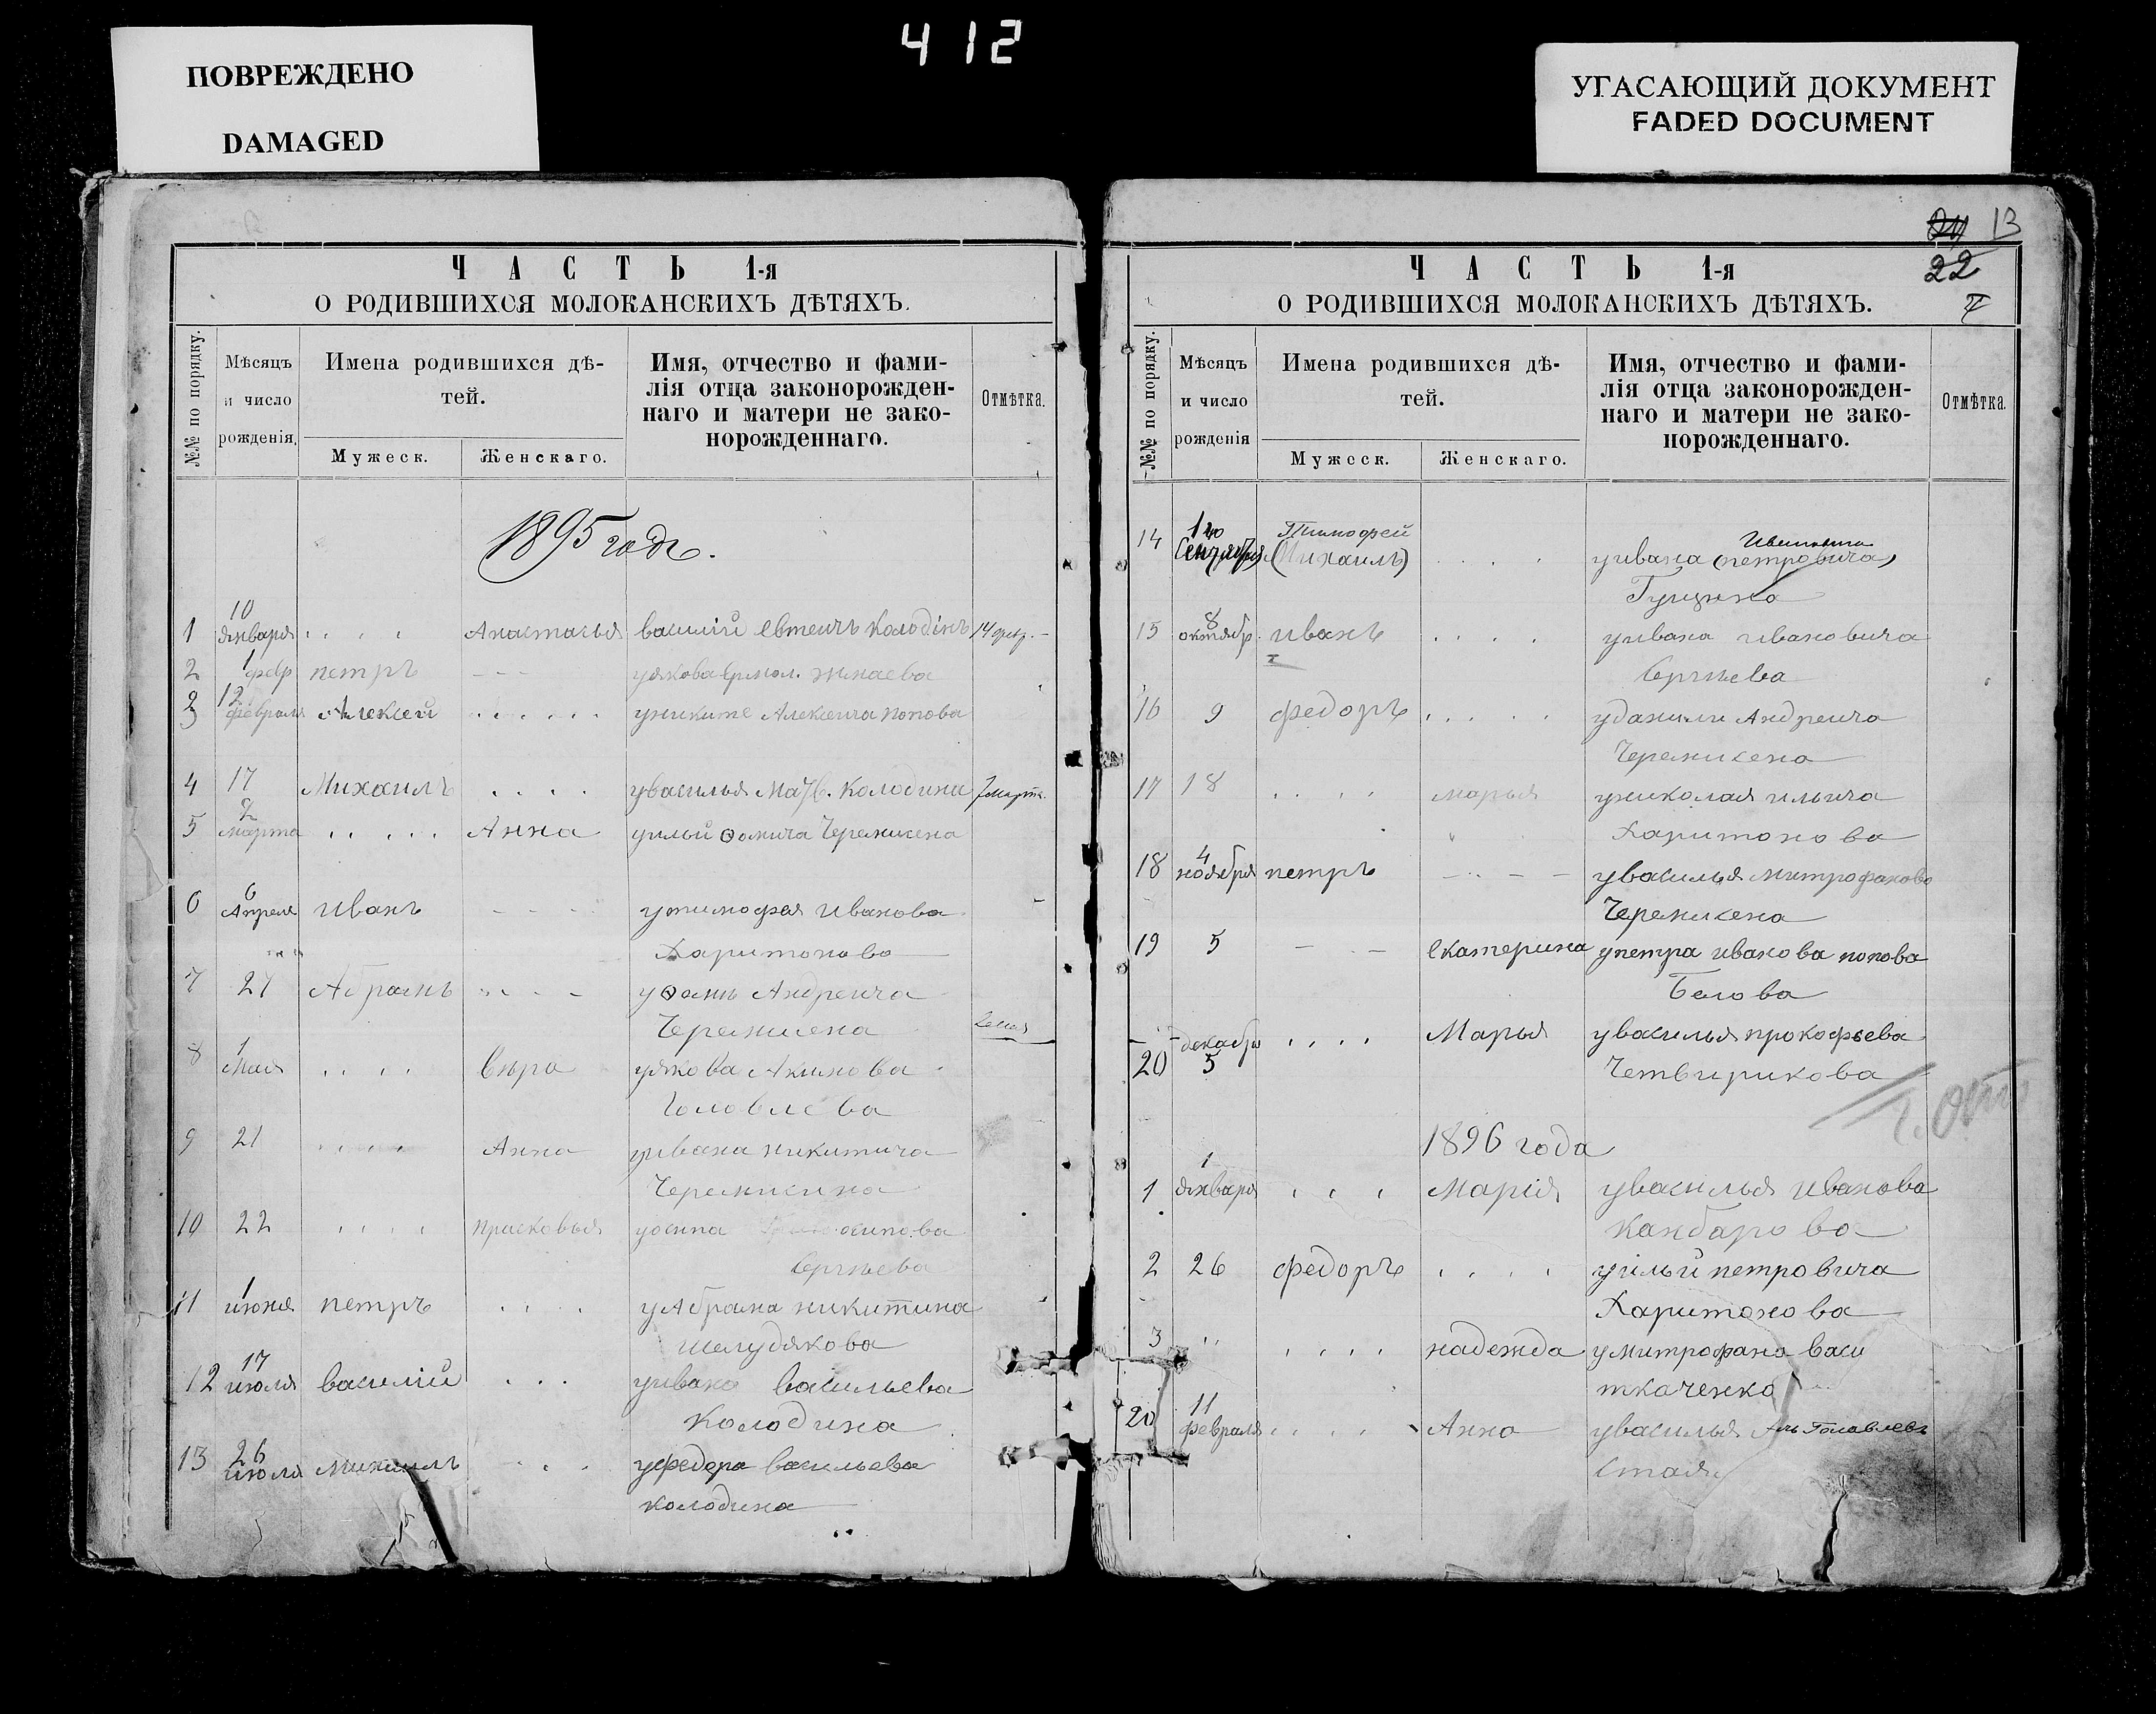 412
ПОВРЕЖДЕНО
DAMAGED
УГАСАЮЩИЙ ДОКУМЕНТ
FADED DOCUMENT
ЧАСТЬ 1-я
О РОДИВШИХСЯ МОЛОКАНСКИХЪ ДѢТЯХЪ.
№№ по порядку.
Мѣсяцъ
и число
рожденія.
Имена родившихся дѣ-
тей.
Мужеск.
Женскаго.
Имя, отчество и фами-
лія отца законорожден-
наго и матери не зако-
норожденнаго.
Отмѣтка.
1895 годъ.
10
1 января Анастасья василій Евтеичъ колодінъ
1
2 февр петръ
12
3 февраля Алексей униките Алексеича попова
4 17 Михаилъ увасилья колодина 7 марта
5 марта Анна уильи Ѳомича Черемисена
6
6 Апреля иванъ утимофея иванова
Харитонова
7 Абрамъ уѲомы Андреича
Черемисена
1
8 мая вѣра уякова Акимова
Головлева
9 21 Анна уивана никитича
Черемисина
10 22 прасковья уосипа осипова
Сергѣева
1
11 июня петръ уАбрама никитина
шелудякова
17
12 июля василий уивана васильева
колодина
26
13 июля михаилъ уфедора васильева
колодина
13
22
ЧАСТЬ 1-я
О РОДИВШИХСЯ МОЛОКАНСКИХЪ ДѢТЯХЪ.
№№ по порядку.
Мѣсяцъ
и число
рожденія
Имена родившихся дѣ-
тей.
Мужеск.
Женскаго.
Имя, отчество и фами-
лія отца законорожден-
наго и матери не зако-
норожденнаго.
Отмѣтка.
Тимофей
14 Сентября (Михаилъ) уивана (петровича)
8
15 октябр. иванъ уивана ивановича
Сергѣева
16 9 федоръ уданили Андреича
Черемисена
17 18 марья униколая ильича
Харитонова
4
18 ноября петръ увасилья митрофанова
Черемисена
19 5 Екатерина упетра иванова попова
Белова
декабря Марья увасилья прокофьева
20 5 Четвирикова
1896 года
1
1 января Марія увасилья иванова
канбарова
2 26 федоръ уильи петровича
Харитонова
3 " надежда умитрофана васи
ткаченко
11
20 февраля Анна увасилья Головлева